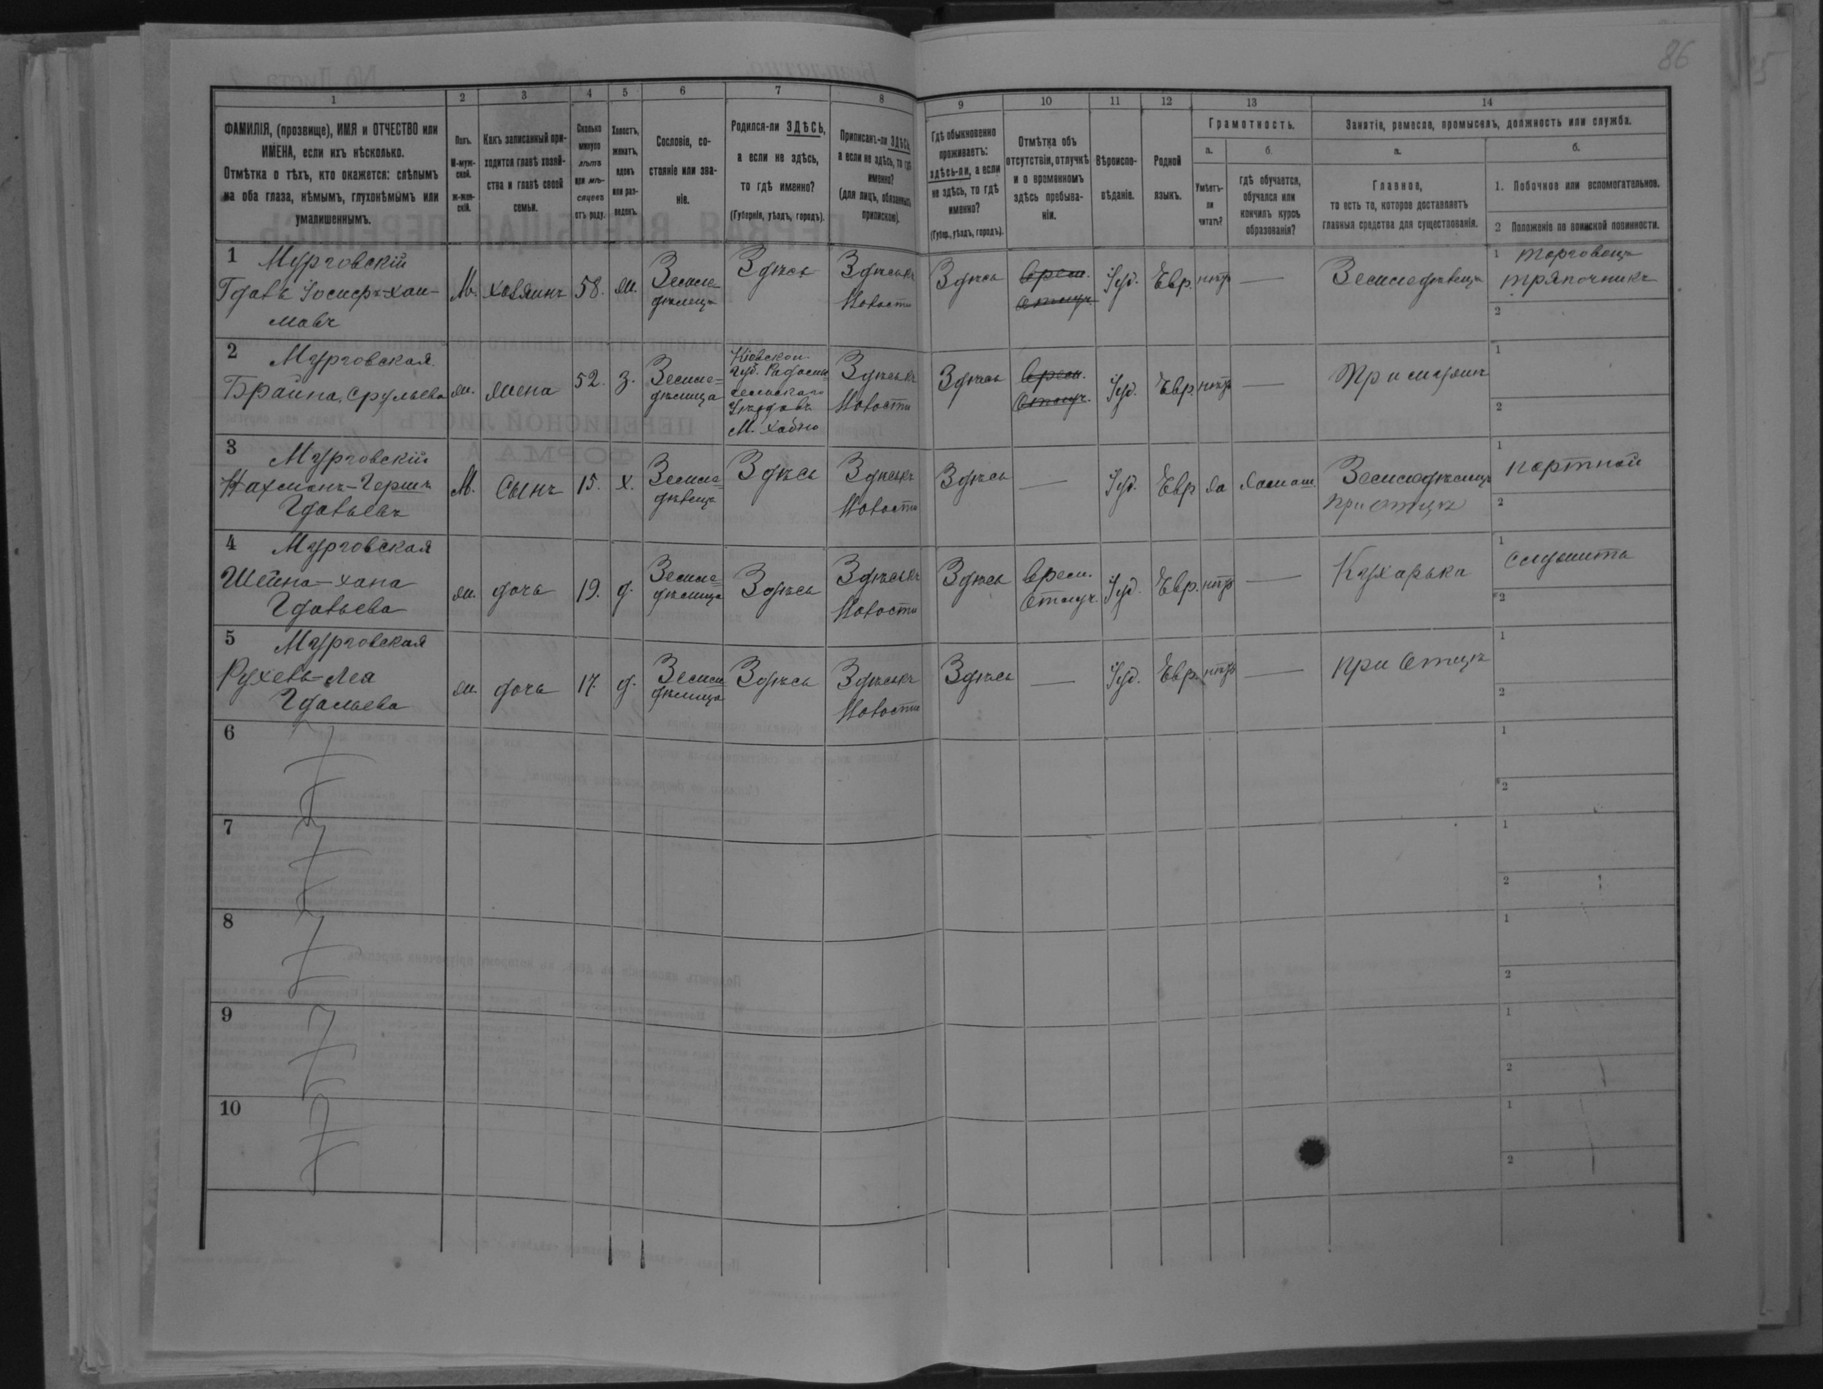 86
1 2 3 4 5 6 7 8 9 10 11 12 13 14
ФАМИЛІЯ, (прозвище), ИМЯ и ОТЧЕСТВО или
ИМЕНА, если ихъ нѣсколько.
Отмѣтка о тѣхъ, кто окажется: слѣпымъ
на оба глаза, нѣмымъ, глухонѣмымъ или
умалишеннымъ.
Полъ.
М-муж-
ской.
ж-жен-
скій.
Какъ записанный при-
ходится главѣ хозяй-
ства и главѣ своей
семьи.
Сколько
минуло
лѣтъ
или мѣ-
сяцевъ
отъ роду.
Холостъ,
женатъ,
вдовъ
или раз-
веденъ.
Сословіе, со-
стояніе или зва-
ніе.
Родился-ли ЗДѢСЬ,
а если не здѣсь,
то гдѣ именно?
(Губернія, уѣздъ, городъ).
Приписанъ-ли ЗДѢСЬ,
а если не здѣсь, то гдѣ
именно?
(для лицъ, обязанныхъ
припискою).
Гдѣ обыкновенно
проживаетъ:
здѣсь-ли, а если
не здѣсь, то гдѣ
именно?
(Губер., уѣздъ, городъ).
Отмѣтка объ
отсутствіи, отлучкѣ
и о временномъ
здѣсь пребыва-
ніи.
Вѣроиспо-
вѣданіе.
Родной
языкъ.
Грамотность.
а.
Умѣетъ-
ли
читать?
б.
гдѣ обучается,
обучался или
кончилъ курсъ
образованія?
Занятіе, ремесло, промыселъ, должность или служба.
а.
Главное,
то есть то, которое доставляетъ
главныя средства для существованія.
б.
1. Побочное или вспомогательное.
2 Положеніе по воинской повинности.
1 Мурговскій
Гдалъ Іосифъ-Хаи-
мовъ
М. хозяинъ 58. ж.
Земле
дѣлецъ
Здѣсь
Здѣськъ
Новости
Здѣсь
Врем.
Отлуч.
Іуд. Евр. нѣтъ —
Земледѣлецъ
1 торговецъ
тряпочникъ
2
2 Мурговская
Брайна Срульева
ж. жена 52. з.
Земле=
дѣлица
Кіевской
губ. Радомы
сельскаго
Уѣзда въ
М. Хабно
Здѣськъ
Новости
Здѣсь
Врем.
Отлуч.
Іуд. Евр. нѣтъ —
При мужѣ
1
2
3 Мурговскій
Нахманъ-Гершъ
Гдальевъ
М. Сынъ 15. х.
Земле=
дѣлецъ
Здѣсь
Здѣськъ
Новости
Здѣсь
—
Іуд. Евр. да домаш
Земледѣлецъ
при отцѣ
1 портной
2
4 Мурговская
Шейна-хана
Гдальева
ж. дочь 19. д.
Земле=
дѣлица
Здѣсь
Здѣськъ
Новости
Здѣсь
Врем.
Отлуч.
Іуд. Евр. нѣтъ —
Кухарька
1 служитъ
2
5 Мурговская
Рухель-Леа
Гдальева
ж. дочь 17. д.
Земле
дѣлица
Здѣсь
Здѣськъ
Новости
Здѣсь
—
Іуд. Евр. нѣтъ —
при Отцѣ
1
2
6
1
2
7
1
2
8
1
2
9
1
2
10
1
2